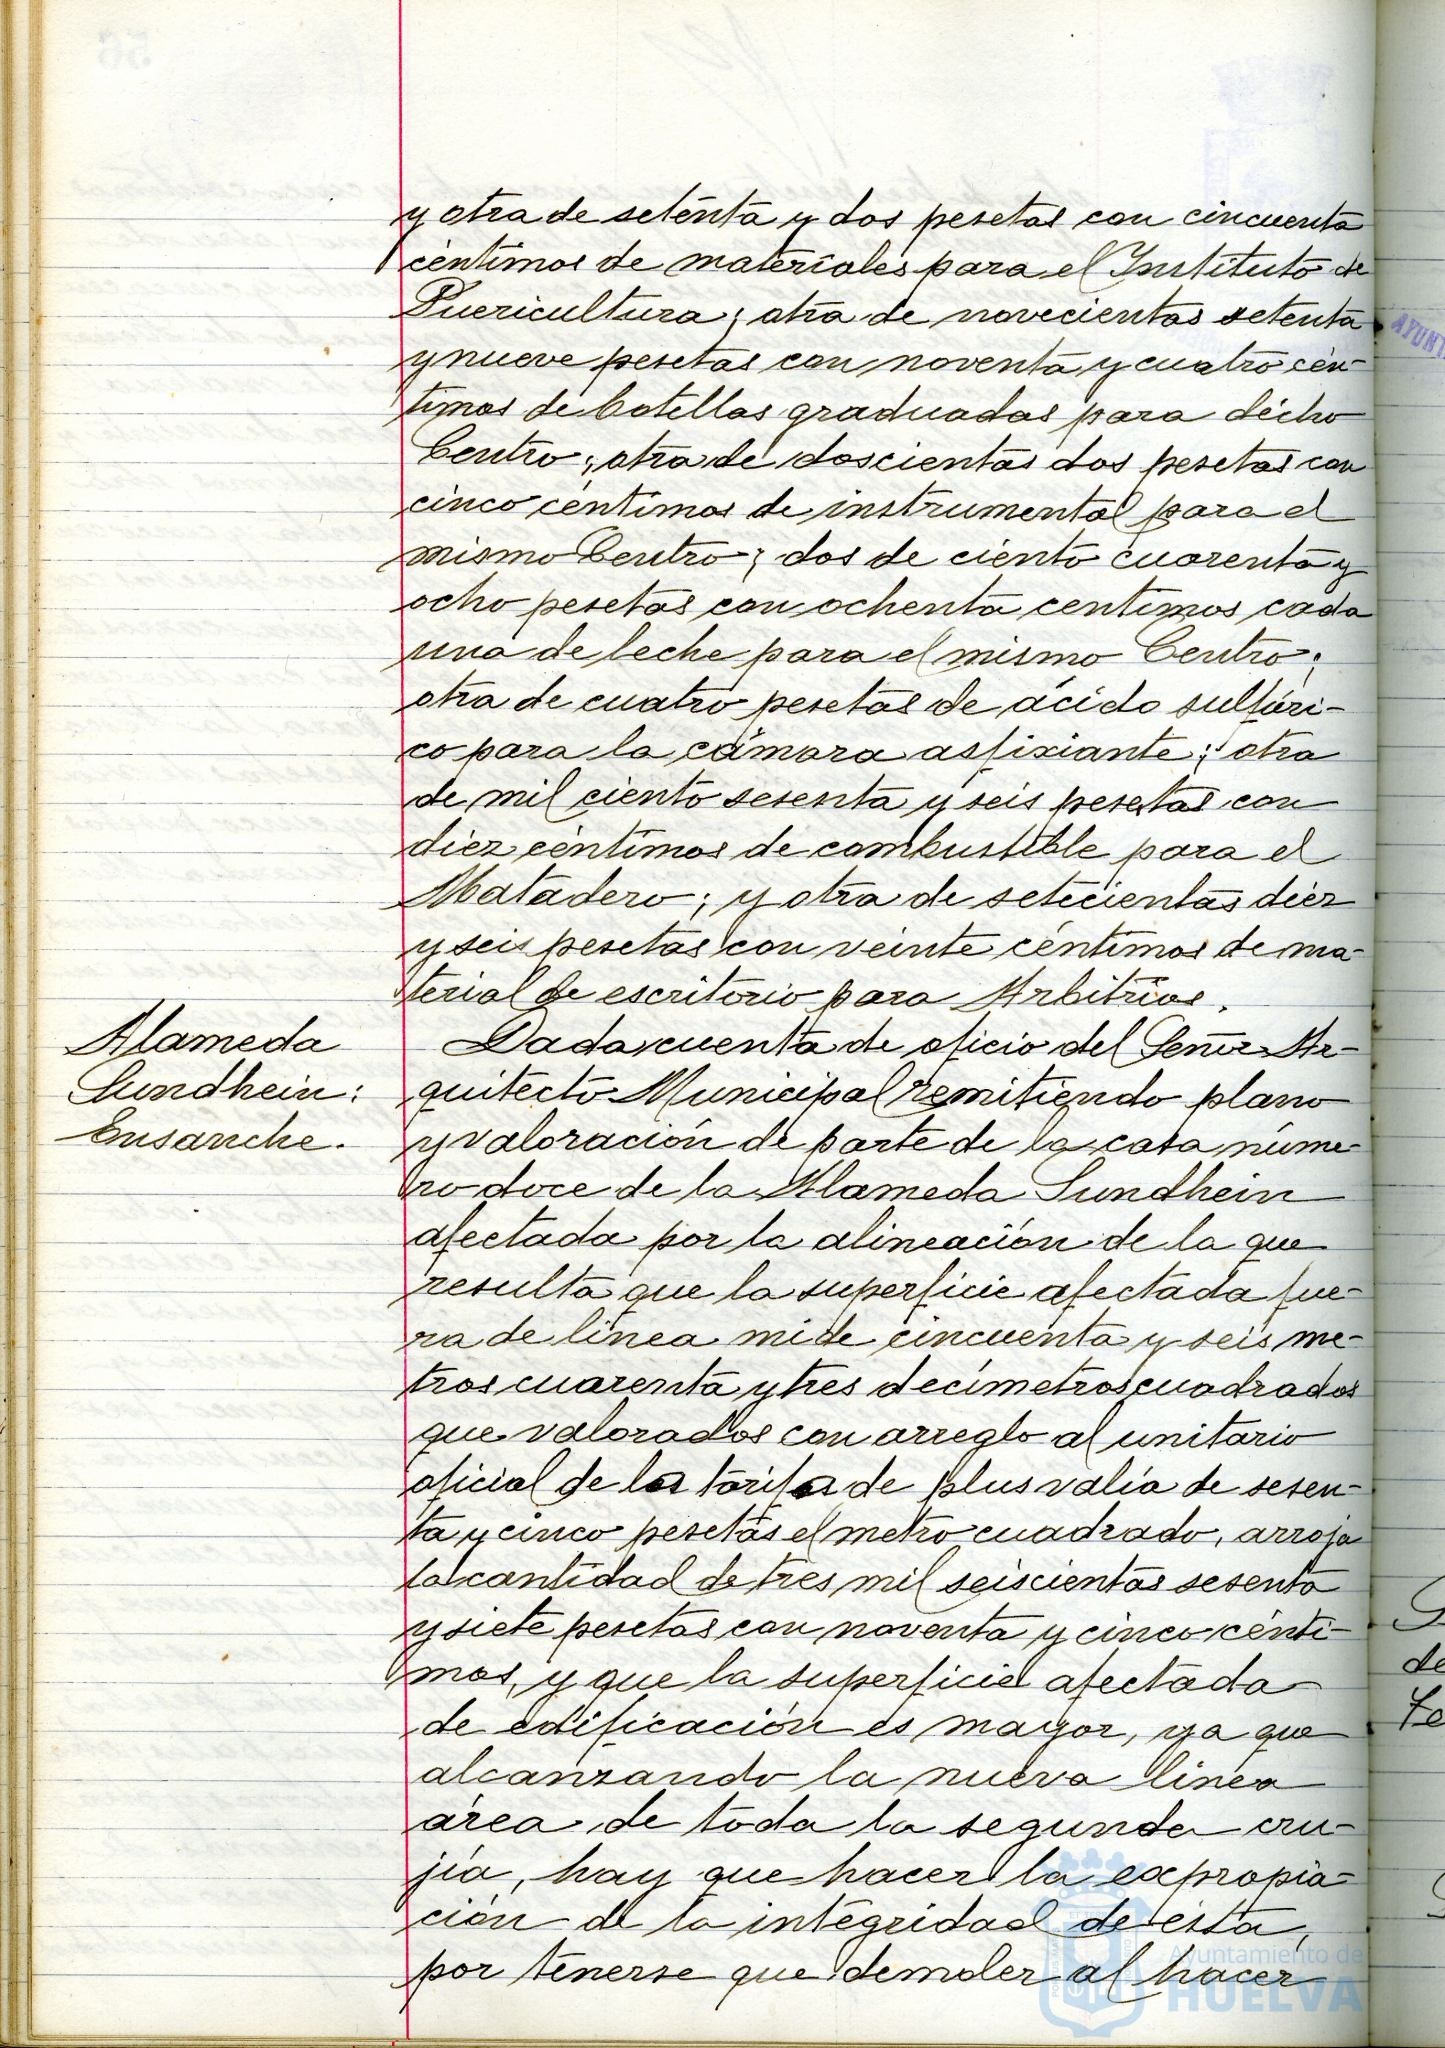 y otra de setenta y dos pesetas con cincuenta
céntimos de materiales para el Instituto de
Puericultura; otra de novecientas setenta
y nueve pesetas con noventa y cuatro cén-
timos de botellas graduadas para dicho
Centro; otra de doscientas dos pesetas con
cinco céntimos de instrumental para el
mismo Centro; dos de ciento cuarenta y
ocho pesetas con ochenta centimos cada
una de leche para el mismo Centro;
otra de cuatro pesetas de ácido sulfúri-
co para la cámara asfixiante; otra
de mil ciento sesenta y seis pesetas con
diez céntimos de combustible para el
Matadero; y otra de setecientas diez
y seis pesetas con veinte céntimos de ma-
terial de escritorio para Arbitrios.
Alameda
Sundhein:
Ensanche.
Dada cuenta de oficio del Señor Ar-
quitecto Municipal remitiendo plano
y valoración de parte de la casa núme-
ro doce de la Alameda Sundhein
afectada por la alineación de la que
resulta que la superficie afectada fue-
ra de línea mide cincuenta y seis me-
tros cuarenta y tres decímetros cuadrados
que valorados con arreglo al unitario
oficial de las tarifas de plus valía de sesen-
ta y cinco pesetas el metro cuadrado, arroja
la cantidad de tres mil seiscientas sesenta
y siete pesetas con noventa y cinco cénti-
mos, y que la superficie afectada
de edificación es mayor, ya que
alcanzando la nueva línea
área de toda la segunda cru-
jía, hay que hacer la expropia-
ción de la integridad de ésta,
por tenerse que demoler al hacer
Ayuntamiento de
HUELVA
AYUNT
de
Fe